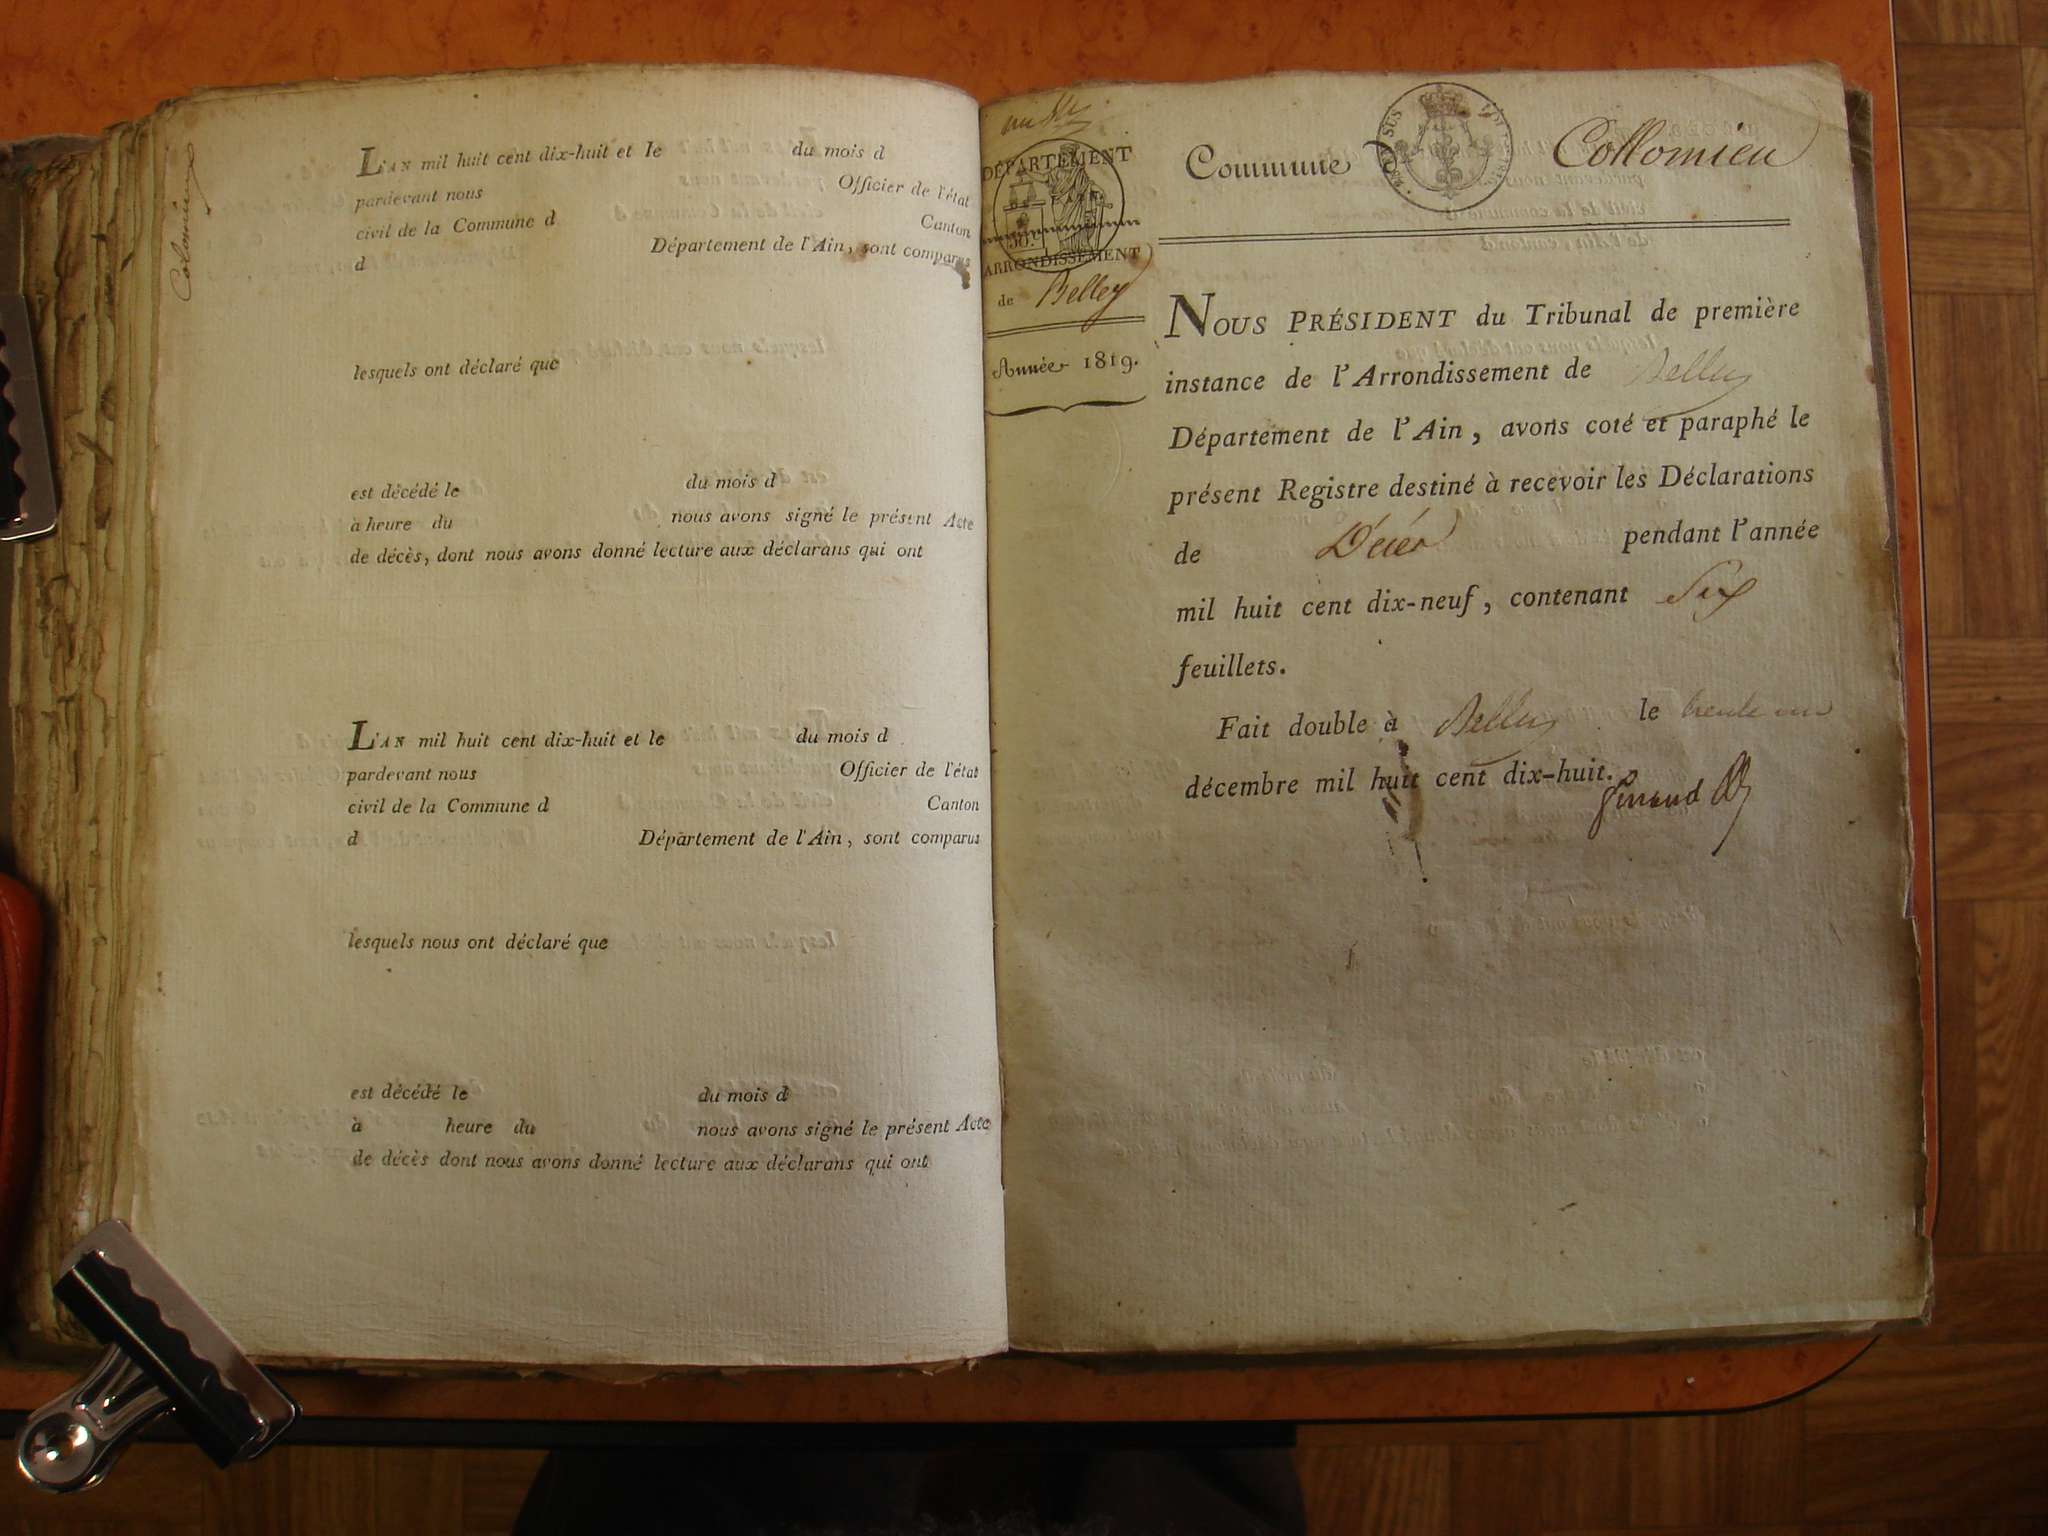 Colomieu
L'AN mil huit cent dix-huit et le du mois d
pardevant nous Officier de l'état
civil de la Commune d Canton
d Département de l'Ain, sont comparus
lesquels ont déclaré que
est décédé le du mois d
à heure du nous avons signé le présent Acte
de décès, dont nous avons donné lecture aux déclarans qui ont
L'AN mil huit cent dix-huit et le du mois d
pardevant nous Officier de l'état
civil de la Commune d Canton
d Département de l'Ain, sont comparus
lesquels nous ont déclaré que
est décédé le du mois d
à heure du nous avons signé le présent Acte
de décès dont nous avons donné lecture aux déclarans qui ont
DÉPARTEMENT
ARRONDISSEMENT
de Belley
Année 1819.
Commune Collomieu
NOUS PRÉSIDENT du Tribunal de première
instance de l'Arrondissement de Belley
Département de l'Ain, avons coté et paraphé le
présent Registre destiné à recevoir les Déclarations
de Décés pendant l'année
mil huit cent dix-neuf, contenant Six
feuillets.
Fait double à Belley le trente un
décembre mil huit cent dix-huit.